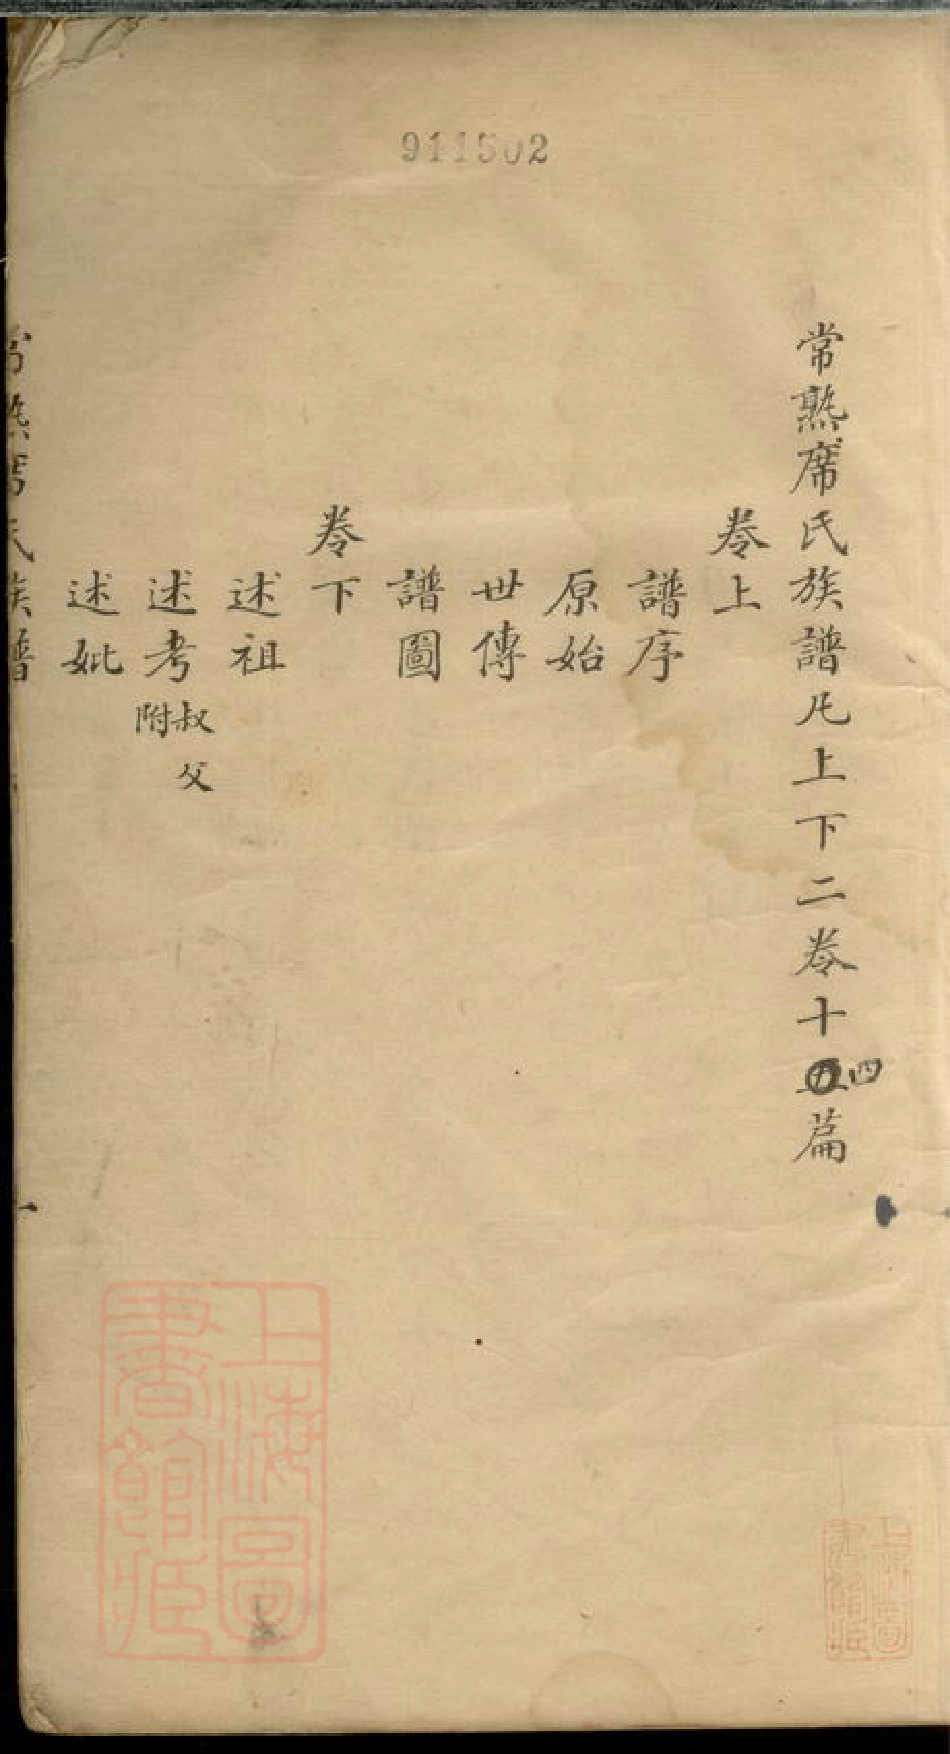 911502
常熟席氏族譜凡上下二卷十四篇
卷上
譜序
原始
世傳
譜圖
卷下
述祖
述考 叔父附
述妣
常熟席氏族譜
上海圖書館藏
上海圖書館藏